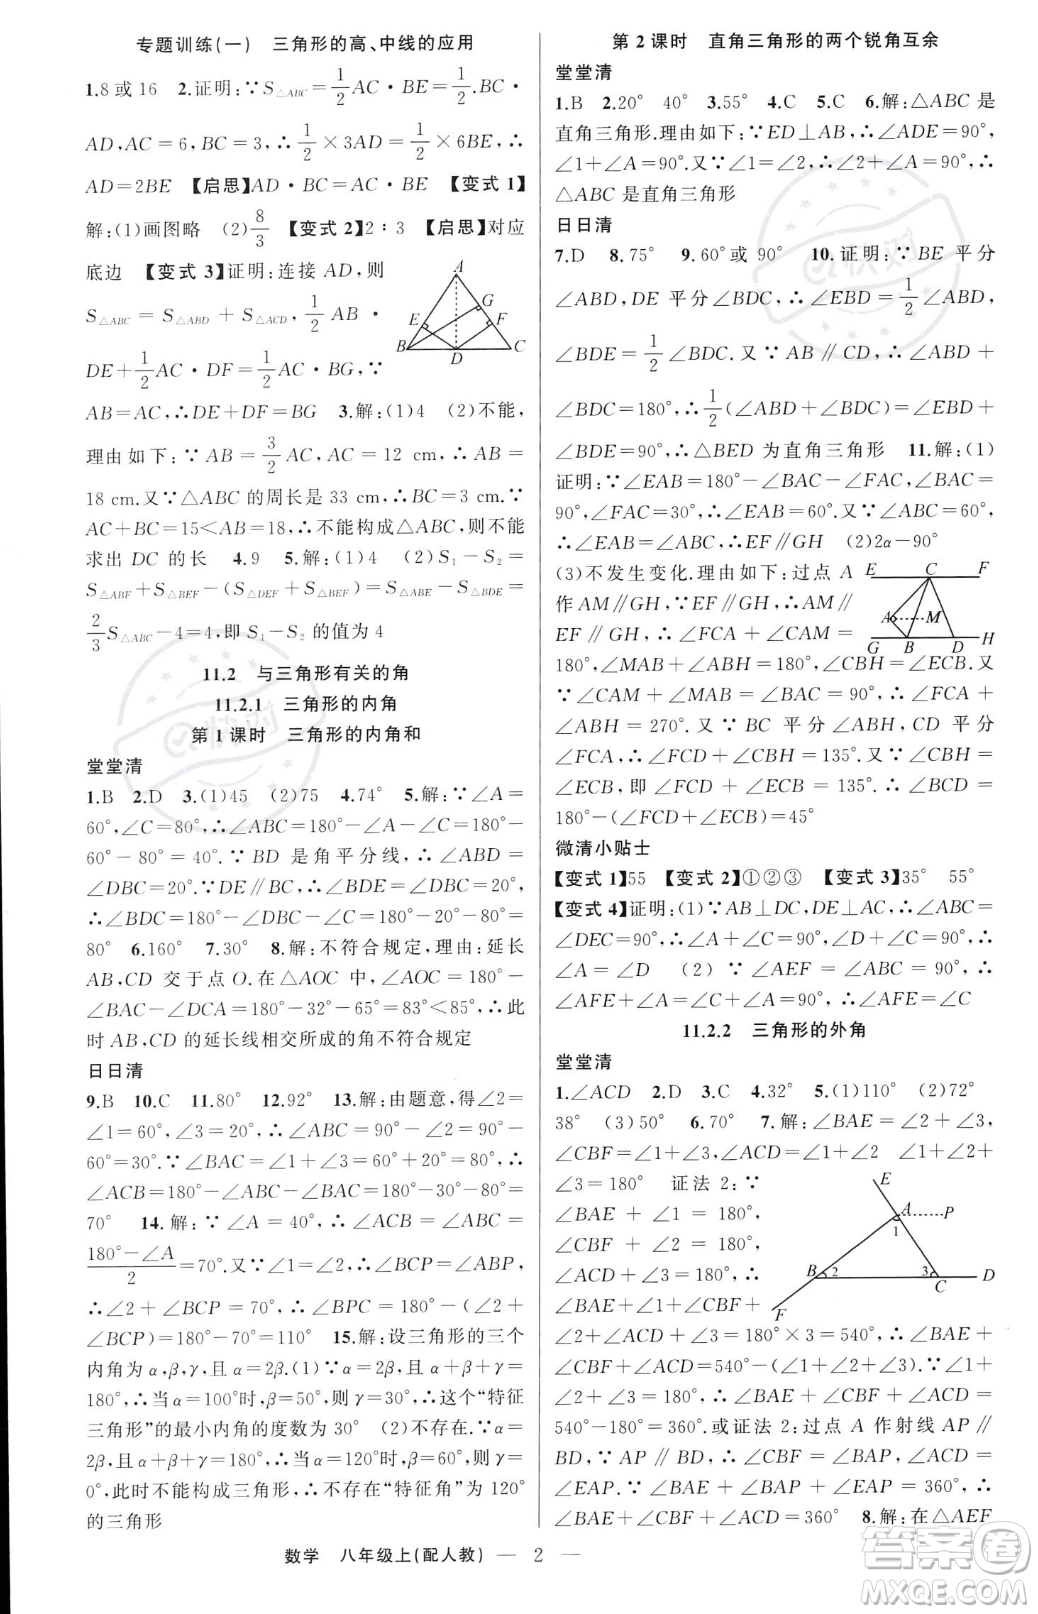 专题训练(一)　三角形的高、中线的应用
1.8 或 16　2.证明:∵S△ABC=1/2 AC·BE=1/2 BC·
AD,AC=6,BC=3,∴1/2×3AD=1/2×6BE,∴
AD=2BE　【启思】AD·BC=AC·BE　【变式 1】
解:(1)画图略　(2)8/3　【变式 2】2∶3　【启思】对应
底边　【变式 3】证明:连接 AD,则
S△ABC=S△ABD+S△ACD,∴1/2 AB·
DE+1/2 AC·DF=1/2 AC·BG,∵
AB=AC,∴DE+DF=BG　3.解:(1)4　(2)不能,
理由如下:∵AB=3/2 AC,AC=12 cm,∴AB=
18 cm.又∵△ABC 的周长是 33 cm,∴BC=3 cm.∵
AC+BC=15<AB=18,∴不能构成△ABC,则不能
求出 DC 的长　4.9　5.解:(1)4　(2)S₁-S₂=
S△ABF+S△BEF-(S△DEF+S△BEF)=S△ABE-S△BDE=
2/3 S△ABC-4=4,即 S₁-S₂ 的值为 4
11.2　与三角形有关的角
11.2.1　三角形的内角
第 1 课时　三角形的内角和
堂堂清
1.B　2.D　3.(1)45　(2)75　4.74°　5.解:∵∠A=
60°,∠C=80°,∴∠ABC=180°-∠A-∠C=180°-
60°-80°=40°.∵BD 是角平分线,∴∠ABD=
∠DBC=20°.∵DE∥BC,∴∠BDE=∠DBC=20°,
∴∠BDC=180°-∠DBC-∠C=180°-20°-80°=
80°　6.160°　7.30°　8.解:不符合规定,理由:延长
AB,CD 交于点 O.在△AOC 中,∠AOC=180°-
∠BAC-∠DCA=180°-32°-65°=83°<85°,∴此
时 AB,CD 的延长线相交所成的角不符合规定
日日清
9.B　10.C　11.80°　12.92°　13.解:由题意,得∠2=
∠1=60°,∠3=20°,∴∠ABC=90°-∠2=90°-
60°=30°.∵∠BAC=∠1+∠3=60°+20°=80°,∴
∠ACB=180°-∠BAC-∠ABC=180°-80°-30°=
70°　14.解:∵∠A=40°,∴∠ACB=∠ABC=
(180°-∠A)/2=70°.又∵∠1=∠2,∴∠BCP=∠ABP,
∴∠2+∠BCP=70°,∴∠BPC=180°-(∠2+
∠BCP)=180°-70°=110°　15.解:设三角形的三个
内角为 α,β,γ,且 α=2β.(1)∵α=2β,且 α+β+γ=
180°,∴当 α=100°时,β=50°,则 γ=30°,∴这个“特征
三角形”的最小内角的度数为 30°　(2)不存在.∵α=
2β,且 α+β+γ=180°,∴当 α=120°时,β=60°,则 γ=
0°,此时不能构成三角形,∴不存在“特征角”为 120°
的三角形
A
G
E
F
B
D
C
第 2 课时　直角三角形的两个锐角互余
堂堂清
1.B　2.20°　40°　3.55°　4.C　5.C　6.解:△ABC 是
直角三角形.理由如下:∵ED⊥AB,∴∠ADE=90°,
∠1+∠A=90°.又∵∠1=∠2,∴∠2+∠A=90°,∴
△ABC 是直角三角形
日日清
7.D　8.75°　9.60°或 90°　10.证明:∵BE 平分
∠ABD,DE 平分∠BDC,∴∠EBD=1/2∠ABD,
∠BDE=1/2∠BDC.又∵AB∥CD,∴∠ABD+
∠BDC=180°,∴1/2(∠ABD+∠BDC)=∠EBD+
∠BDE=90°,∴△BED 为直角三角形　11.解:(1)
证明:∵∠EAB=180°-∠BAC-∠FAC,∠BAC=
90°,∠FAC=30°,∴∠EAB=60°.又∵∠ABC=60°,
∴∠EAB=∠ABC,∴EF∥GH　(2)2α-90°
(3)不发生变化.理由如下:过点 A
作 AM∥GH,∵EF∥GH,∴AM∥
EF∥GH,∴∠FCA+∠CAM=
180°,∠MAB+∠ABH=180°,∠CBH=∠ECB.又
∵∠CAM+∠MAB=∠BAC=90°,∴∠FCA+
∠ABH=270°.又∵BC 平分∠ABH,CD 平分
∠FCA,∴∠FCD+∠CBH=135°.又∵∠CBH=
∠ECB,即∠FCD+∠ECB=135°,∴∠BCD=
180°-(∠FCD+∠ECB)=45°
E
C
F
A
M
G
B
D
H
微清小贴士
【变式 1】55　【变式 2】①②③　【变式 3】35°　55°
【变式 4】证明:(1)∵AB⊥DC,DE⊥AC,∴∠ABC=
∠DEC=90°,∴∠A+∠C=90°,∠D+∠C=90°,∴
∠A=∠D　(2)∵∠AEF=∠ABC=90°,∴
∠AFE+∠A=∠C+∠A=90°,∴∠AFE=∠C
11.2.2　三角形的外角
堂堂清
1.∠ACD　2.D　3.C　4.32°　5.(1)110°　(2)72°
38°　(3)50°　6.70°　7.解:∠BAE=∠2+∠3,
∠CBF=∠1+∠3,∠ACD=∠1+∠2　∠1+∠2
+∠3=180°　证法 2:∵
∠BAE+∠1=180°,
∠CBF+∠2=180°,
∠ACD+∠3=180°,∴
∠BAE+∠1+∠CBF+
∠2+∠ACD+∠3=180°×3=540°,∴∠BAE+
∠CBF+∠ACD=540°-(∠1+∠2+∠3).∵∠1+
∠2+∠3=180°,∴∠BAE+∠CBF+∠ACD=
540°-180°=360°.或证法 2:过点 A 作射线 AP∥
BD.∵AP∥BD,∴∠CBF=∠BAP,∠ACD=
∠EAP.∵∠BAE+∠BAP+∠EAP=360°,∴
∠BAE+∠CBF+∠ACD=360°　8.解:在△AEF
E
A
P
1
B
2
3
C
D
F
数学　八年级上(配人教)　— 2 —
快对
快对
答案圈
MXQE.COM